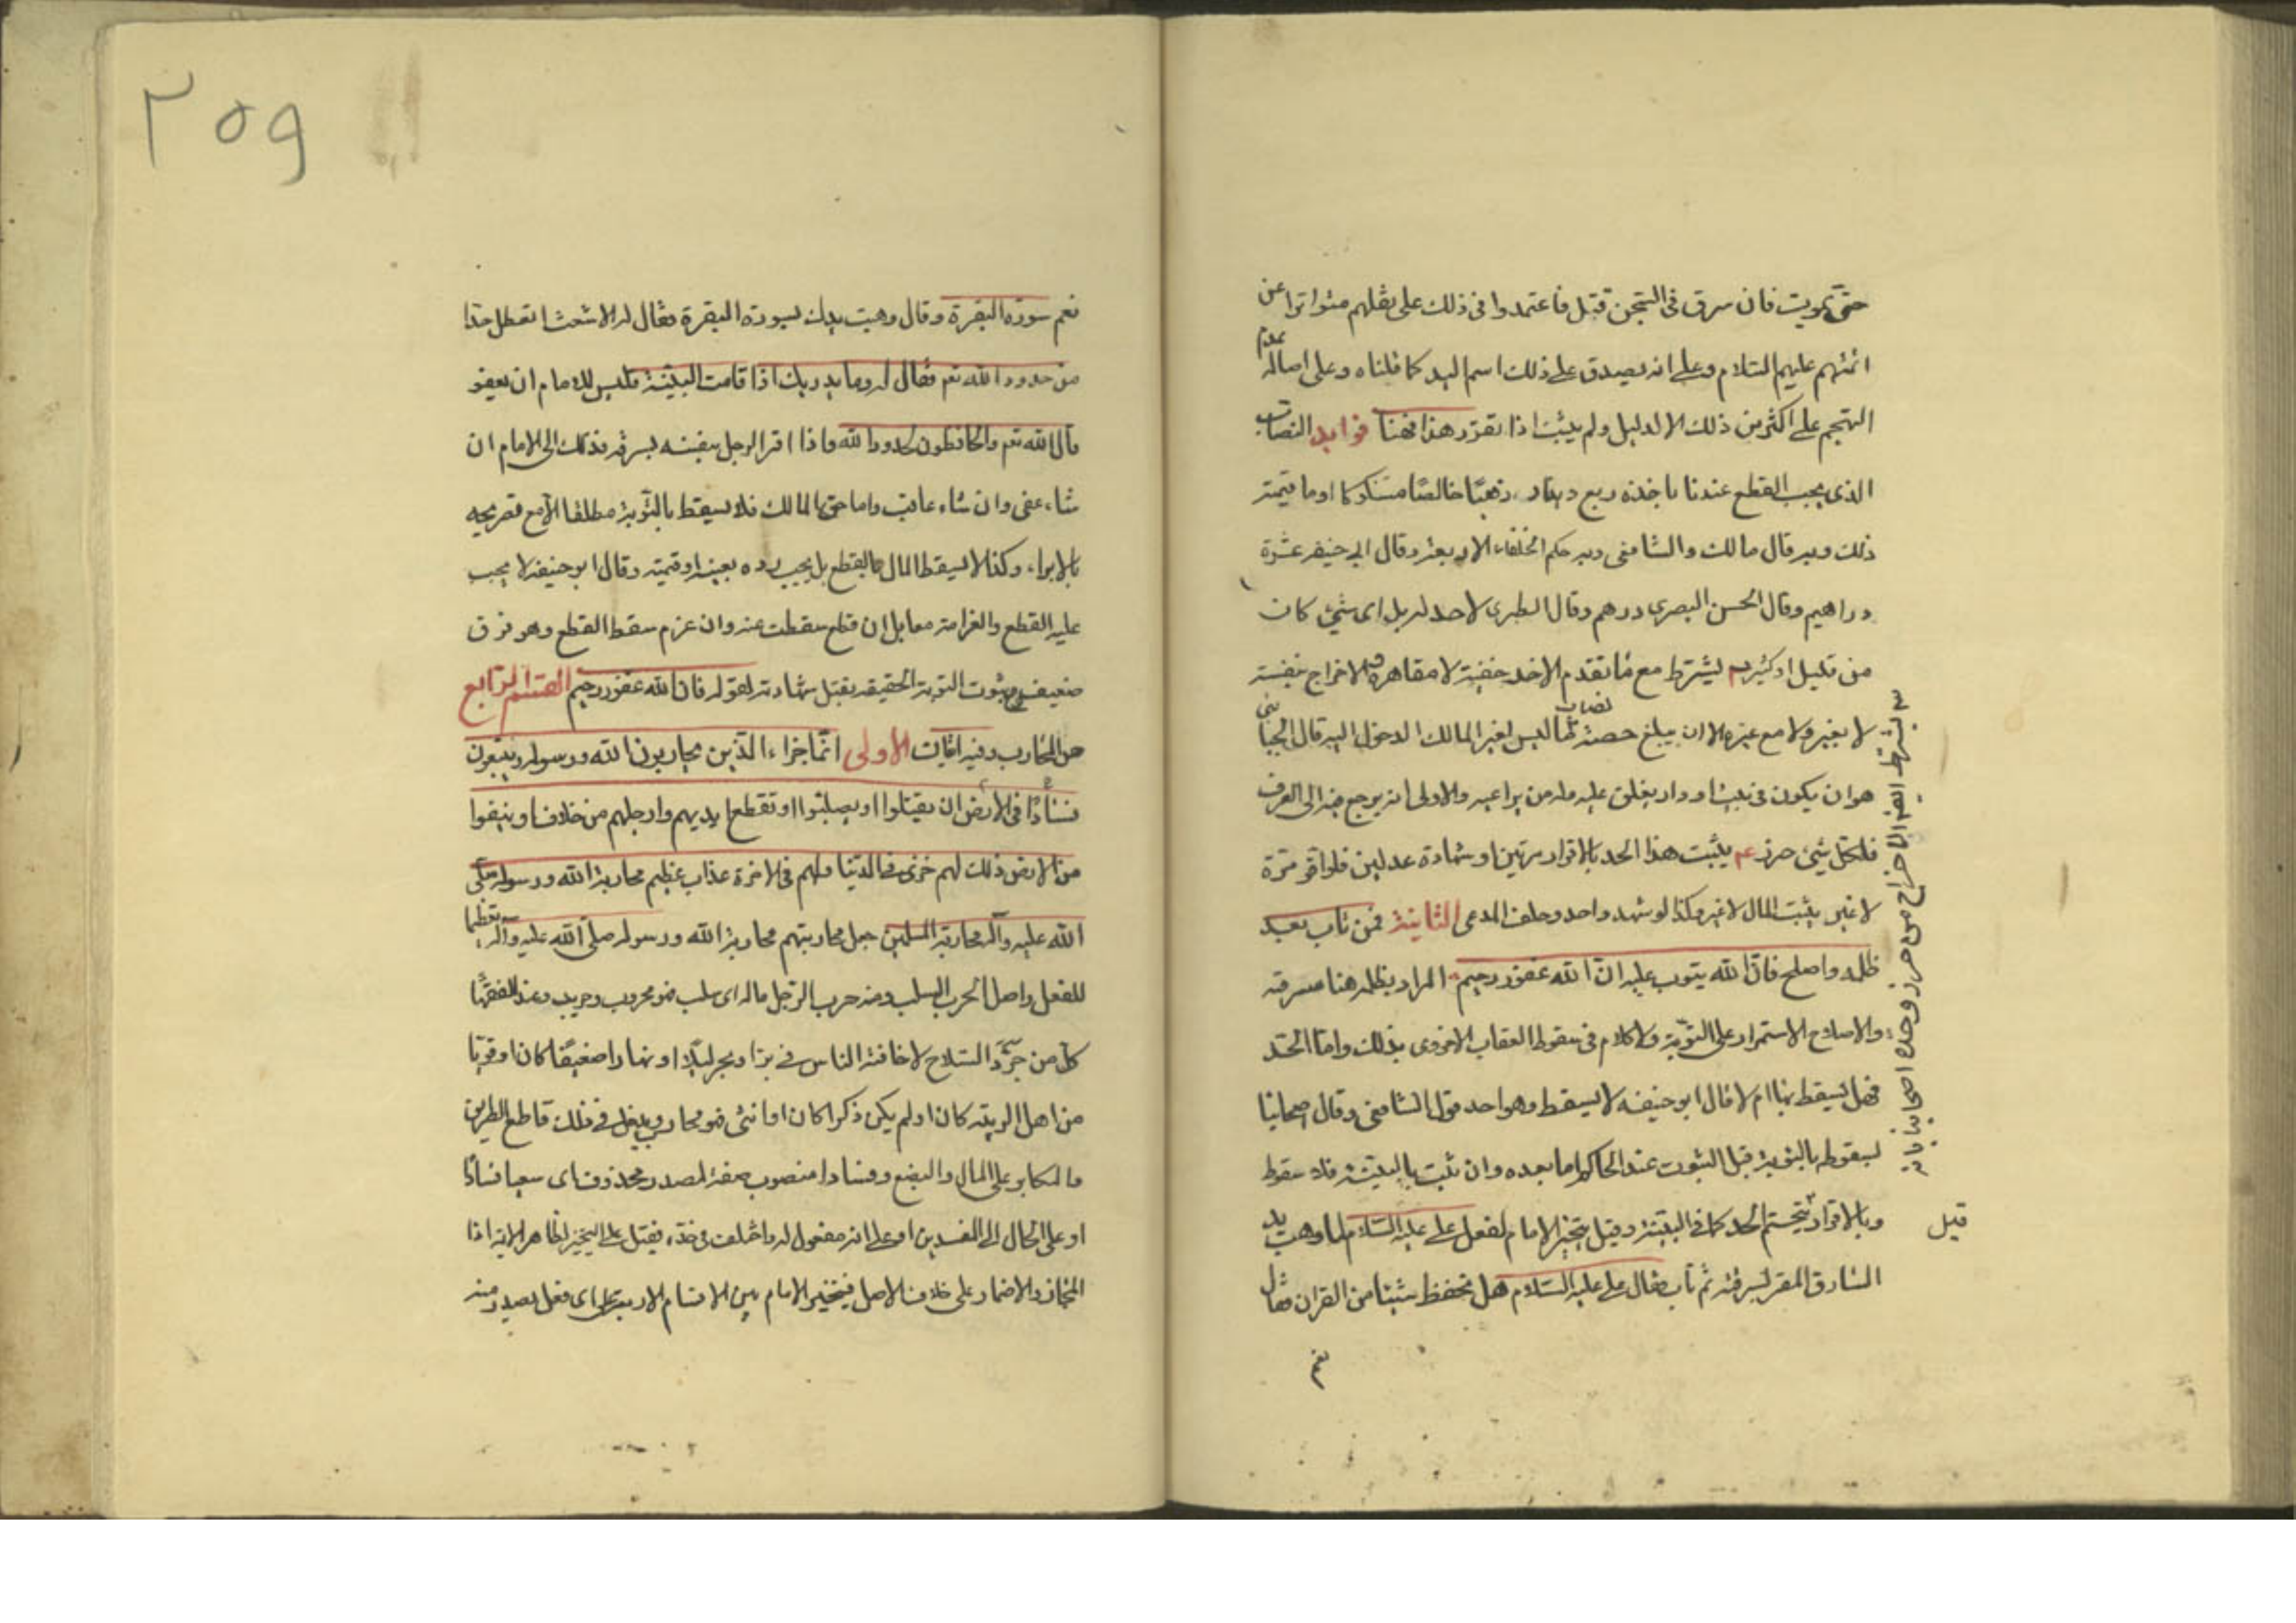 حتى يموت فان سرق فى السجن قتل فاعتمدوا فى ذلك على نقلهم متواترا عن
ائمتهم عليهم السلام وعلى انه يصدق على ذلك اسم اليد كما قلناه وعلى اصالة عدم
التهجم على اكثر من ذلك الا لدليل ولم يثبت اذا تقرر هذا فهنا فوايد النصاب
الذى يجب القطع عندنا باخذه ربع دينار ذهبًا خالصًا مسكوكا او ما قيمته
ذلك وبه قال مالك والشافعى وبه حكم الخلفاء الاربعة وقال ابى حنيفه عشرة
دراهيم وقال الحسن البصرى درهم وقال الطبرى لا حد له بل اى شئ كان
من قليل او كثير يشترط مع ما تقدم الاخد خفية لا مقاهرة والاخراج بنفسه
لا بغيره ولا مع غيره الا ان يبلغ حصته نصاب ما ليس لغير المالك الدخول اليه قال الجبائى
هو ان يكون فى بيت او دار يغلق عليه وله من يراعيه والاولى انه يرجع فيه الى العرف
فلكل شئ حرز يثبت هذا الحد بالاقرار مرتين او شهادة عدلين فلو اقر مرة
لا غير يثبت المال لا غير وكذا لو شهد واحد وحلف المدعى الثانية فمن تاب بعد
ظلمه واصلح فان الله يتوب عليه ان الله غفور رحيم المراد بظلمه هنا سرقته
والاصلاح الاستمرار على التوبة ولا كلام فى سقوط العقاب الاخروى بذلك واما الحد
فهل يسقط بها ام لا قال ابو حنيفه لا يسقط وهو احد قول الشافعى وقال اصحابنا
بسقوطه بالتوبة قبل الثبوت عند الحاكم اما بعده وان ثبت بالبينة فلا سقوط
وبالاقرار يتحتم الحد كما فى البينة وقيل يتخير الامام لفعل على عليه السلام لما وهب يد
السارق المقر لسرقة ثم تاب فقال على عليه السلام هل تحفظ شيئا من القران فقال
نعم
يشترط الاخراج من حرز وحده اصحابنا بانه
قيل
٢٥٩
نعم سورة البقرة وقال وهبت يدك لسورة البقرة فقال له الاشعث اتعطل حدا
من حدود الله تعم فقال له وما يدريك اذا قامت البينة فليس للامام ان يعفو
قال الله تعم والحافظون لحدود الله واذا اقر الرجل بنفسه بسرقه فذلك الى الامام ان
شاء عفى وان شاء عاقب واما حق المالك فلا يسقط بالتوبة مطلقا الا مع تصريحه
بالابراء وكذا لا يسقط المال بالقطع بل يجب رده بعينه او قيمته وقال ابو حنيفه لا يجب
عليه القطع والغرامة معا بل ان قطع سقطت عنه وان غرم سقط القطع وهو فرق
ضعيف بثبوت التوبة الحقيقه يقبل شهادته لقوله فان الله غفور رحيم القسم الرابع
حد المحارب وفيه ايات الاولى انما جزاء الذين يحاربون الله ورسوله ويسعون
فسادًا فى الارض ان يقتلوا او يصلبوا او تقطع ايديهم وارجلهم من خلاف او ينفوا
من الارض ذلك لهم خزى فى الدنيا ولهم فى الاخرة عذاب عظيم محاربة الله ورسوله صلى
الله عليه وآله محاربة المسلمين جعل محاربتهم محاربة الله ورسوله صلى الله عليه واله تعظيما
للفعل واصل الحرب السلب ومنه حرب الرجل ماله اى سلب فهو محروب وحريب وعند الفقها
كل من جرد السلاح لاخافة الناس فى بر او بحر ليلا او نهارا ضعيفًا كان او قويا
من اهل الريبة كان او لم يكن ذكرا كان او انثى فهو محارب ويدخل فى ذلك قاطع الطريق
والمكابر على المال والبضع وفسادا منصوب صفة لمصدر محذوف اى سعيا فسادًا
او على الحال اى المفسدين او على انه مفعول له واختلف فى حده فقيل على التخيير لظاهر الاية اذا
المجاز والاضمار على خلاف الاصل فيتخير الامام بين الاقسام الاربعة على اى فعل يصدر منه